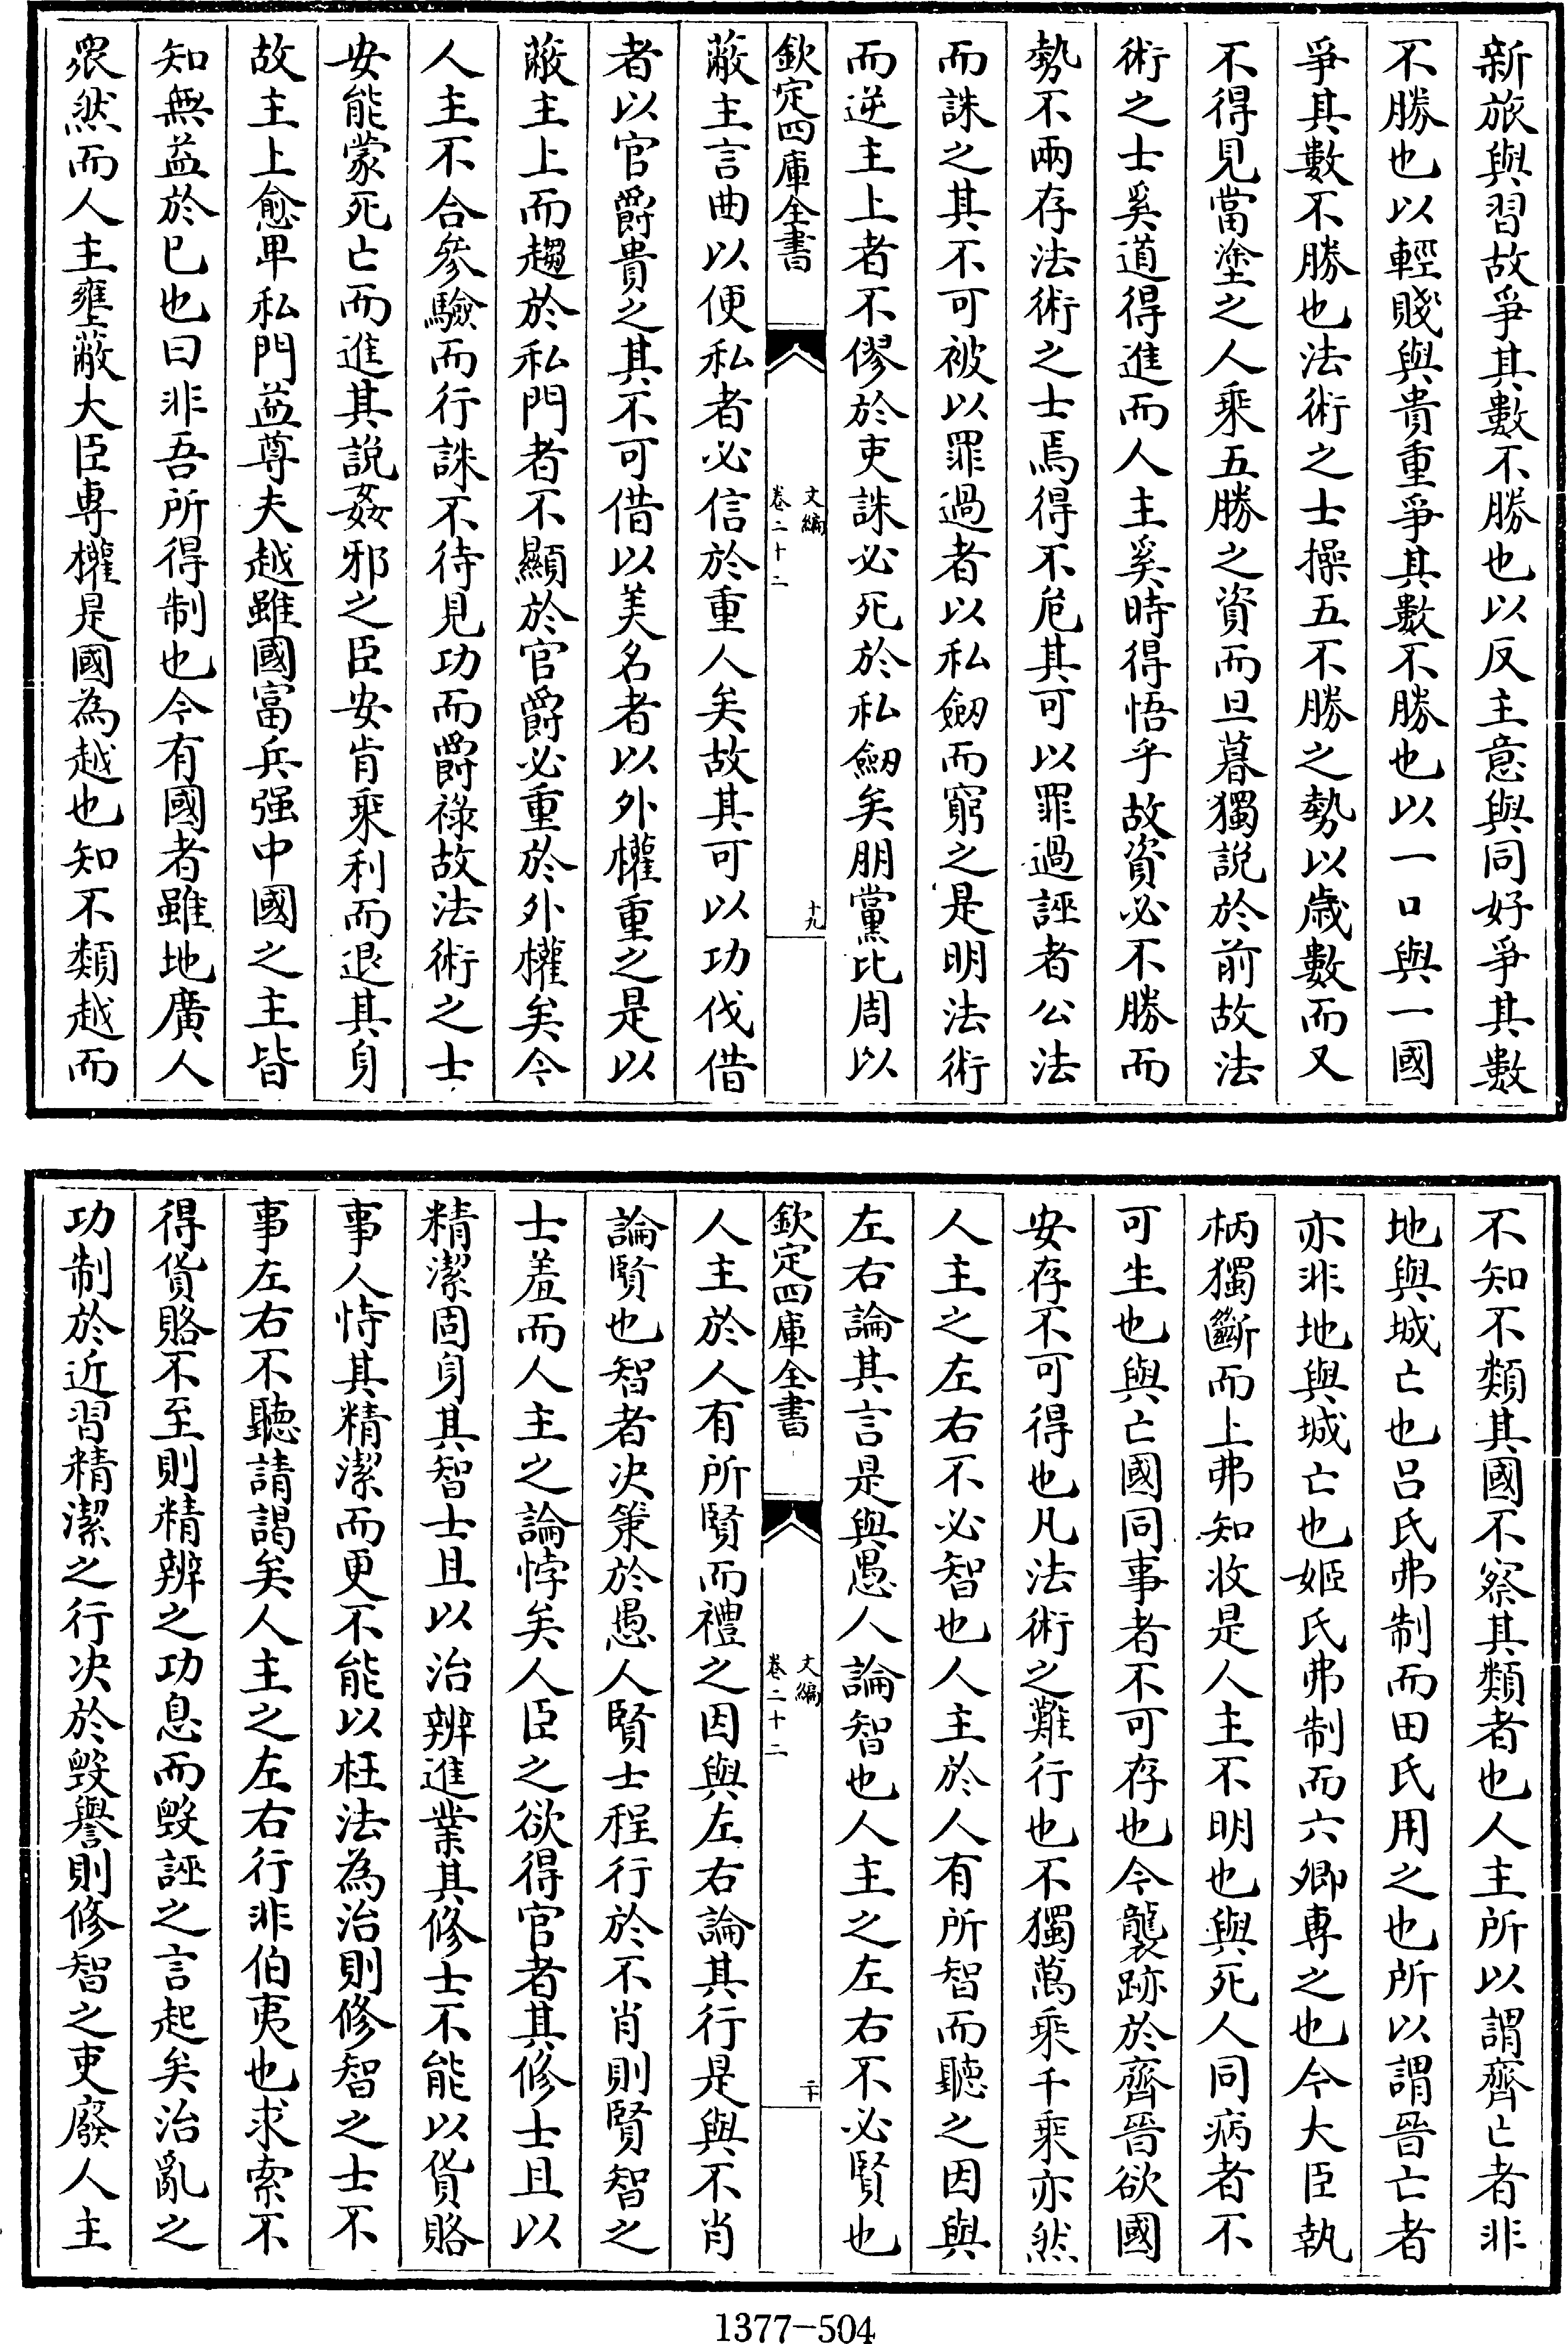 新旅與習故爭其數不勝也以反主意與同好爭其數
不勝也以輕賤與貴重爭其數不勝也以一口與一國
爭其數不勝也法術之士操五不勝之勢以歲數而又
不得見當塗之人乘五勝之資而旦暮獨說於前故法
術之士奚道得進而人主奚時得悟乎故資必不勝而
勢不兩存法術之士焉得不危其可以罪過誣者公法
而誅之其不可被以罪過者以私劒而窮之是明法術
而逆主上者不僇於吏誅必死於私劒矣朋黨比周以
欽定四庫全書
文編
卷二十二
十九
蔽主言曲以便私者必信於重人矣故其可以功伐借
者以官爵貴之其不可借以美名者以外權重之是以
蔽主上而趨於私門者不顯於官爵必重於外權矣今
人主不合參驗而行誅不待見功而爵祿故法術之士
安能蒙死亡而進其說姦邪之臣安肯乘利而退其身
故主上愈卑私門益尊夫越雖國富兵强中國之主皆
知無益於已也曰非吾所得制也今有國者雖地廣人
衆然而人主壅蔽大臣専權是國為越也知不類越而
不知不類其國不察其類者也人主所以謂齊亡者非
地與城亡也吕氏弗制而田氏用之也所以謂晉亡者
亦非地與城亡也姬氏弗制而六卿専之也今大臣執
柄獨斷而上弗知收是人主不明也與死人同病者不
可生也與亡國同事者不可存也今襲跡於齊晉欲國
安存不可得也凡法術之難行也不獨萬乘千乘亦然
人主之左右不必智也人主於人有所智而聽之因與
左右論其言是與愚人論智也人主之左右不必賢也
欽定四庫全書
文編
卷二十二
二十
人主於人有所賢而禮之因與左右論其行是與不肖
論賢也智者决策於愚人賢士程行於不肖則賢智之
士羞而人主之論悖矣人臣之欲得官者其修士且以
精潔固身其智士且以治辨進業其修士不能以貨賂
事人恃其精潔而更不能以枉法為治則修智之士不
事左右不聽請謁矣人主之左右行非伯夷也求索不
得貨賂不至則精辨之功息而毀誣之言起矣治亂之
功制於近習精潔之行决於毀譽則修智之吏廢人主
1377-504